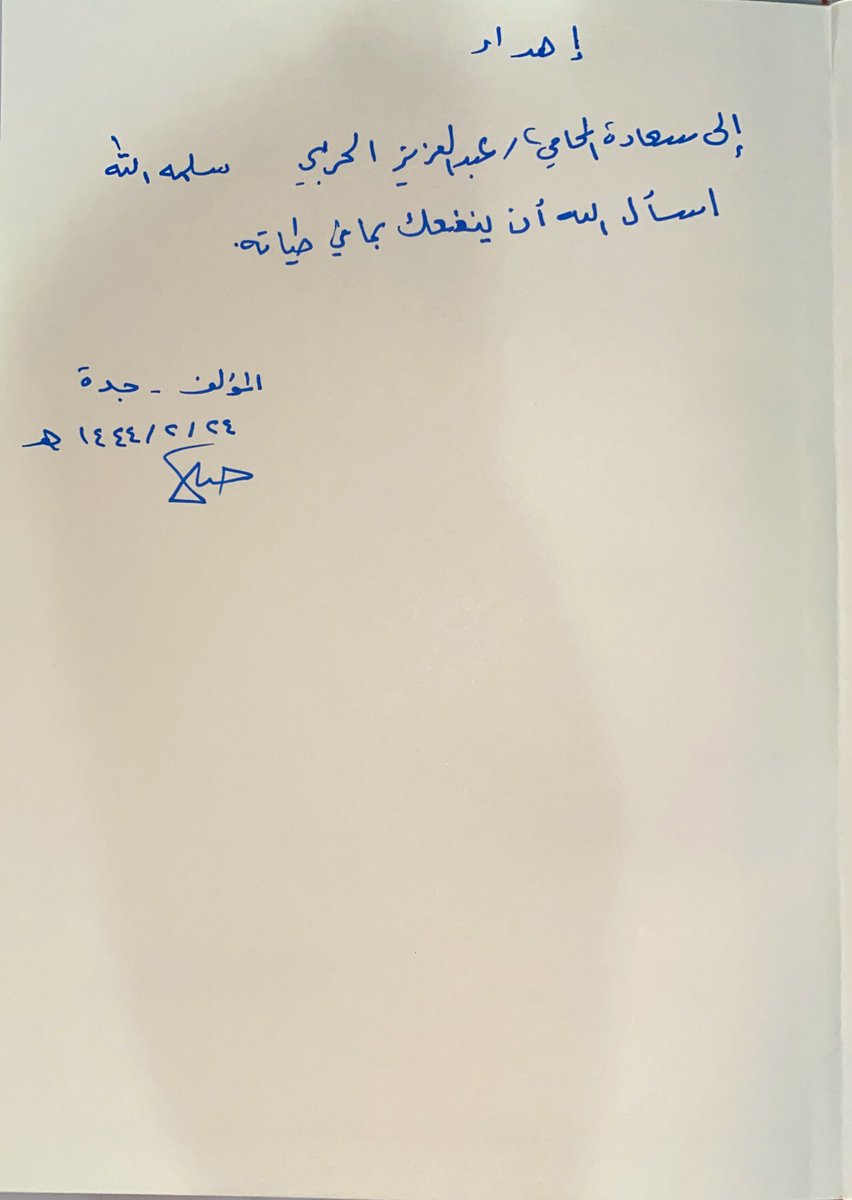 إهداء
إلى سعادة المحامي / عبدالعزيز الحربي سلمه الله
اسأل الله أن ينفعك بما في طياته.
المؤلف - جدة
١٤٤٤/٢/٢٤ هـ